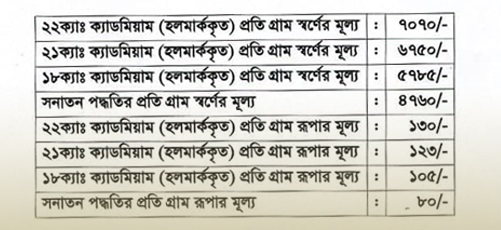 ২২ক্যাঃ ক্যাডমিয়াম (হলমার্ককৃত) প্রতি গ্রাম স্বর্ণের মূল্য : ৭০৭০/-
২১ক্যাঃ ক্যাডমিয়াম (হলমার্ককৃত) প্রতি গ্রাম স্বর্ণের মূল্য : ৬৭৫০/-
১৮ক্যাঃ ক্যাডমিয়াম (হলমার্ককৃত) প্রতি গ্রাম স্বর্ণের মূল্য : ৫৭৮৫/-
সনাতন পদ্ধতির প্রতি গ্রাম স্বর্ণের মূল্য : ৪৭৬০/-
২২ক্যাঃ ক্যাডমিয়াম (হলমার্ককৃত) প্রতি গ্রাম রূপার মূল্য : ১৩০/-
২১ক্যাঃ ক্যাডমিয়াম (হলমার্ককৃত) প্রতি গ্রাম রূপার মূল্য : ১২৩/-
১৮ক্যাঃ ক্যাডমিয়াম (হলমার্ককৃত) প্রতি গ্রাম রূপার মূল্য : ১০৫/-
সনাতন পদ্ধতির প্রতি গ্রাম রূপার মূল্য : ৮০/-